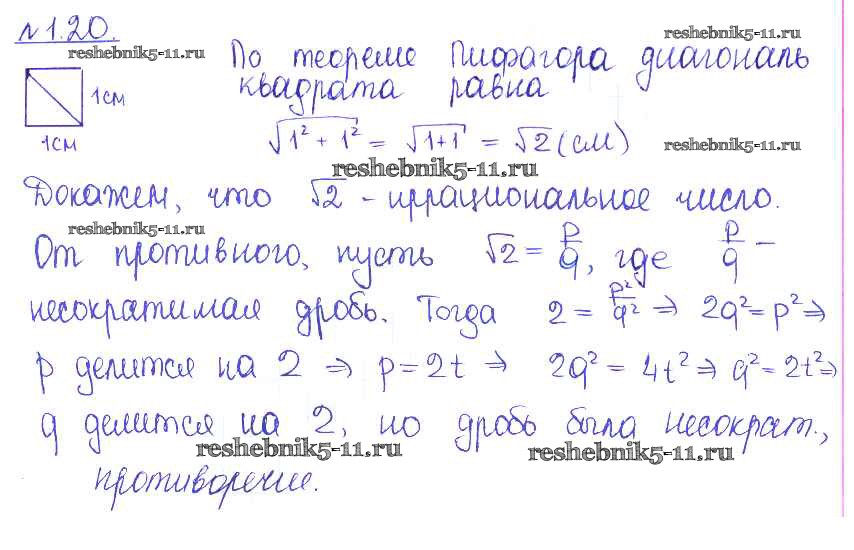 №1.20.
reshebnik5-11.ru
reshebnik5-11.ru
По теореме Пифагора диагональ
квадрата равна
1см
1см
√1² + 1² = √1+1 = √2 (см)
reshebnik5-11.ru
reshebnik5-11.ru
Докажем, что √2 - иррациональное число.
reshebnik5-11.ru
От противного, пусть √2 = p/q, где p/q –
несократимая дробь. Тогда 2 = p²/q² ⇒ 2q² = p² ⇒
p делится на 2 ⇒ p = 2t ⇒ 2q² = 4t² ⇒ q² = 2t² ⇒
q делится на 2, но дробь была несократ.,
reshebnik5-11.ru
reshebnik5-11.ru
противоречие.